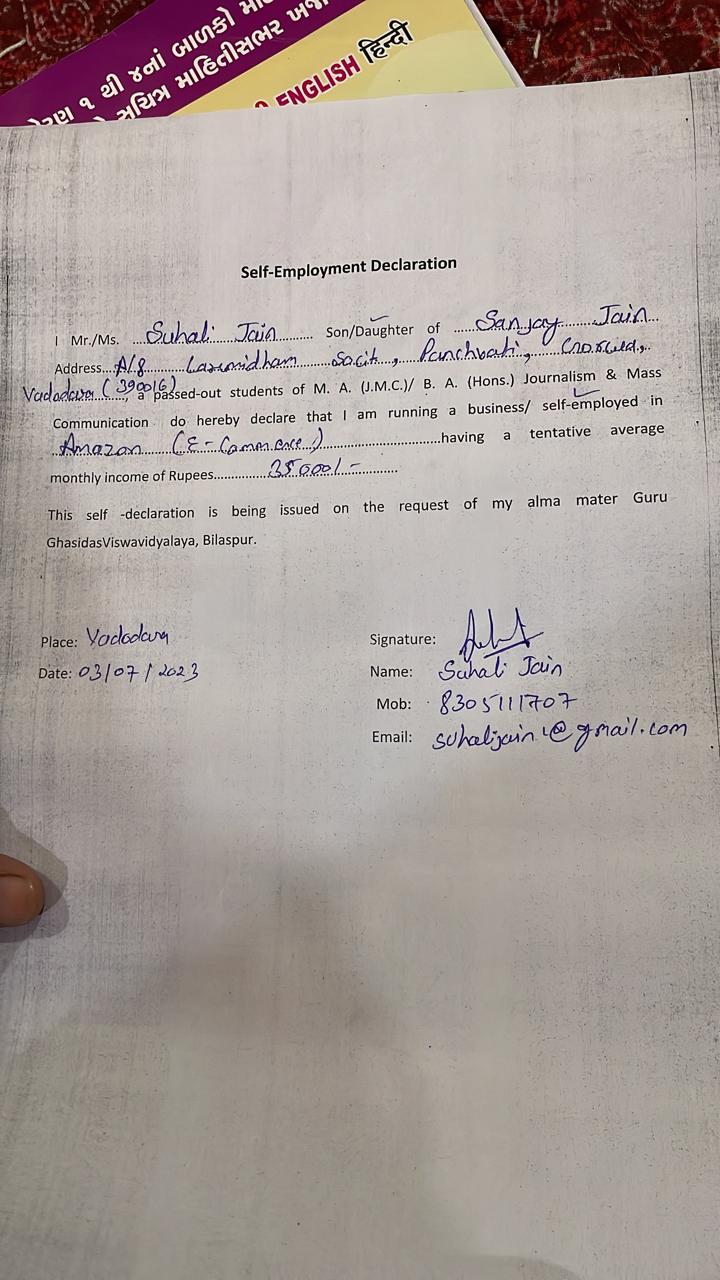 રણ ૧ થી ૪નાં બાળકો મા
સચિત્ર માહિતીસભર ખજા
ENGLISH हिन्दी
Self-Employment Declaration
I Mr./Ms. ...Suhali Jain............ Son/Daughter of ......Sanjay......... Jain...
Address...A/8......... Laxmidham Socit, Panchvati,
Vadodara (390016)...., a passed-out students of M. A. (J.M.C.)/ B. A. (Hons.) Journalism & Mass
Communication do hereby declare that I am running a business/ self-employed in
..Amazon (E-Commerce)..............................having a tentative average
monthly income of Rupees...............35000/-............
This self -declaration is being issued on the request of my alma mater Guru
GhasidasViswavidyalaya, Bilaspur.
Place: Vadodara
Signature:
Date: 03/07/2023
Name: Suhali Jain
Mob: 8305111707
Email: suhalijain1@gmail.com